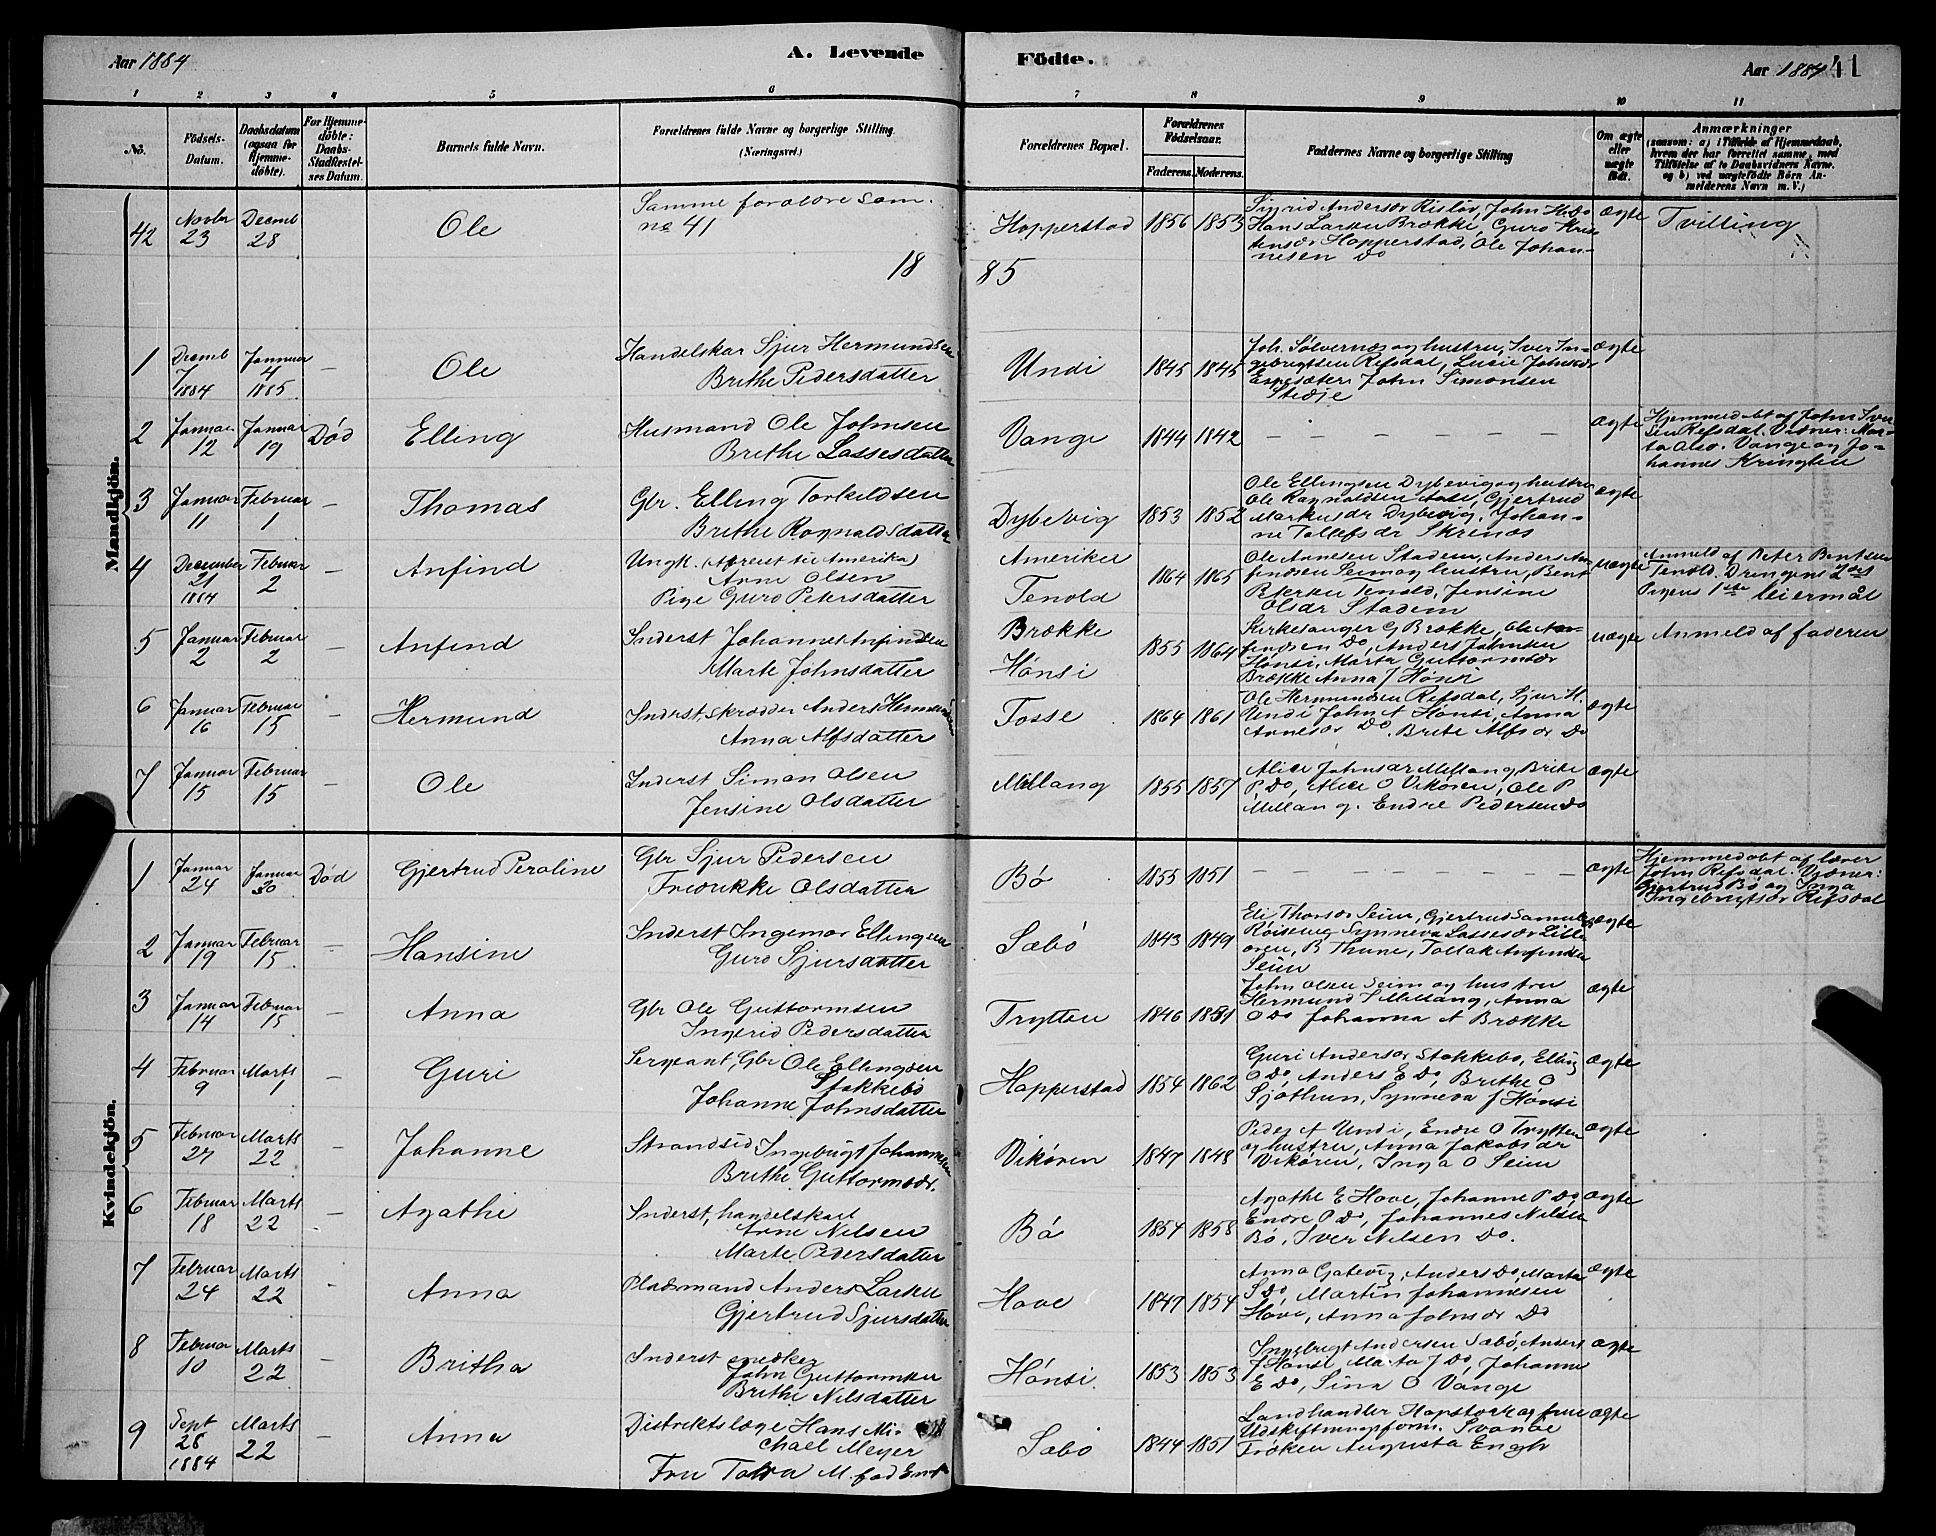 Aar 1884 A. Levende Födte. Aar 1884 41
1 2 3 4 5 6 7 8 9 10 11
No. Födsels-Datum. Daabsdatum (ogsaa for Hjemme-döbte). For Hjemme-döbte: Daabs-Stadfæstel-ses Datum. Barnets fulde Navn. Forældrenes fulde Navne og borgerlige Stilling. (Næringsvei.) Forældrenes Bopæl. Forældrenes Födselsaar. Faderens. Moderens. Faddernes Navne og borgerlige Stilling Om ægte eller uægte födt. Anmærkninger (saasom: a) i Tilfælde af Hjemmedaab, hvem der har forrettet samme, med Tilföielse af to Daabsvidners Navne. og b) ved uægtefödte Börn An-melderens Navn m. V.)
42 Novbr 23 Decemb 28 Ole Samme forældre som no 41 Hopperstad 1856 1853 Sigrid Andersdr Risløv, John H. Do Hans Larsen Brække, Guro Kris-tensdr Hopperstad, Ole Johan-nesen Do ægte Tvilling
18 85
Mandkjön.
1 Decemb 7 1884 Januar 4 1885 – Ole Handelskar Sjur Hermundsen Brithe Pedersdatter Undi 1845 1845 Joh. Sølvernæs og hustru, Iver In-gebrigtsen Refsdal, Lucie Johnsdr Espesæter, John Simonsen Stedje ægte
2 Januar 12 Januar 19 Död Elling Husmand Ole Johnsen Brithe Lassesdatter Vange 1844 1842 – – – – – – ægte Hjemmedøbt af John Iver-sen Refsdal. Vidner: Mar-ta Olsd. Vange og Jo-hannes Kringlen
3 Januar 11 Februar 1 – Thomas Gbr. Elling Torkildsen Brithe Rognaldsdatter Dybevig 1853 1852 Ole Ellingsen Dybevig og hustru Ole Ragnaldsen Aase, Gjertrud Markusdr Dybevig, Johan-ne Tollefsdr Skrenos ægte
4 December 21 1884 Februar 2 – Anfind Ungk. (Afreist til Amerika) Arne Olsen Pige Guro Petersdatter Amerika Tenold 1864 1865 Ole Arnesen Stadem, Anders An-findsen Seim og hustru, Bent Bjerke Tenold, Jensine Olsdr Stadem uægte Anmeld af Peter Bentsen Tenold. Drengens 2det Pigens 1ste leiermål
5 Januar 2 Februar 2 – Anfind Inderst Johannes Anfindsen Marte Johnsdatter Brække Hønsi 1855 1864 Kirkesanger G Brække, Ole An-findsen Do, Anders Johnsen Hønsi, Marta Guttormsdr Brække Anna J Hønsi uægte Anmeld af faderen
6 Januar 16 Februar 15 – Hermund Inderst, skrædder Anders Hermundsen Anna Alfsdatter Fosse 1864 1861 Ole Hermundsen Refsdal, Sjur H. Undi John A Hønsi, Anna Arnesdr Do. Brite Alfsdr Do ægte
7 Januar 15 Februar 15 – Ole Inderst Simon Olsen Jensine Olsdatter Mellang 1855 1857 Alice Johnsdr Mellang, Brite P Do, Alice O Vikøren, Ole P Mellang, Endre Pedersen Do ægte
Kvindekjön.
1 Januar 24 Januar 30 Död Gjertrud Peroline Gbr Sjur Pedersen Fredrikke Olsdatter Bø 1855 1851 – – – – – – – ægte Hjemmedøbt af lærer John Refsdal. Vidner: Gjertrud Bø og Inga Ingebrigtsdr Refsdal
2 Januar 19 Februar 15 – Hansine Inderst Ingemar Ellingsen Guro Sjursdatter Sæbö 1843 1849 Eli Thorsdr Seim, Gjertrud Samuelsdr Röiseng Synneva Lassesdr Lille-øren, B Thune, Tollak Anfindsen Seim ægte
3 Januar 14 Februar 15 – Anna Gbr Ole Guttormsen Ingerid Pedersdatter Trytten 1846 1851 John Olsen Seim og hustru Hermund S Mellang, Anna O Do Johanna A Brække ægte
4 Februar 9 Marts 1 – Guri Sergeant, Gbr Ole Ellingsen Stokkebö Johanne Johnsdatter Hopperstad 1854 1862 Guri Andersdr Stokkebø, Elling O Do, Anders E Do, Brithe O Sjøthun, Synneva J Hønsi ægte
5 Februar 27 Marts 22 – Johanne Strandsid. Ingebrigt Johannesen Brithe Guttormsdr. Vikøren 1847 1848 Peder A Undi, Endre O Trytten og hustru, Anna Jakobsdr Vikøren, Inga O Seim ægte
6 Februar 18 Marts 22 – Agathe Inderst, handelskarl Arne Nilsen Marte Pedersdatter Bö 1854 1858 Agathe E Hove, Johanne P Do, Endre P Do, Johannes Nilsen Bø, Iver Nilsen Do. ægte
7 Februar 24 Marts 22 – Anna Pladsmand Anders Larsen Gjertrud Sjursdatter Hove 1849 1854 Anna Gatevig, Anders Do, Marta S Do, Martin Johannesen Hove, Anna Johnsdr Do ægte
8 Februar 10 Marts 22 – Britha Inderst snedker John Guttormsen Brithe Nilsdatter Hönsi 1853 1853 Ingebrigt Andersen Sæbø, Anders J Hønsi Marta J Do, Johanne E Do, Sina O Vange ægte
9 Sept 28 1884 Marts 22 – Anna Distriktslæge Hans Mi-chael Meyer Fru Tora M. fød Engh Sæbö 1844 1851 Landhandler Hopstock og frue Udskiftningsform. Svanøe Frøken Augusta Engh ægte